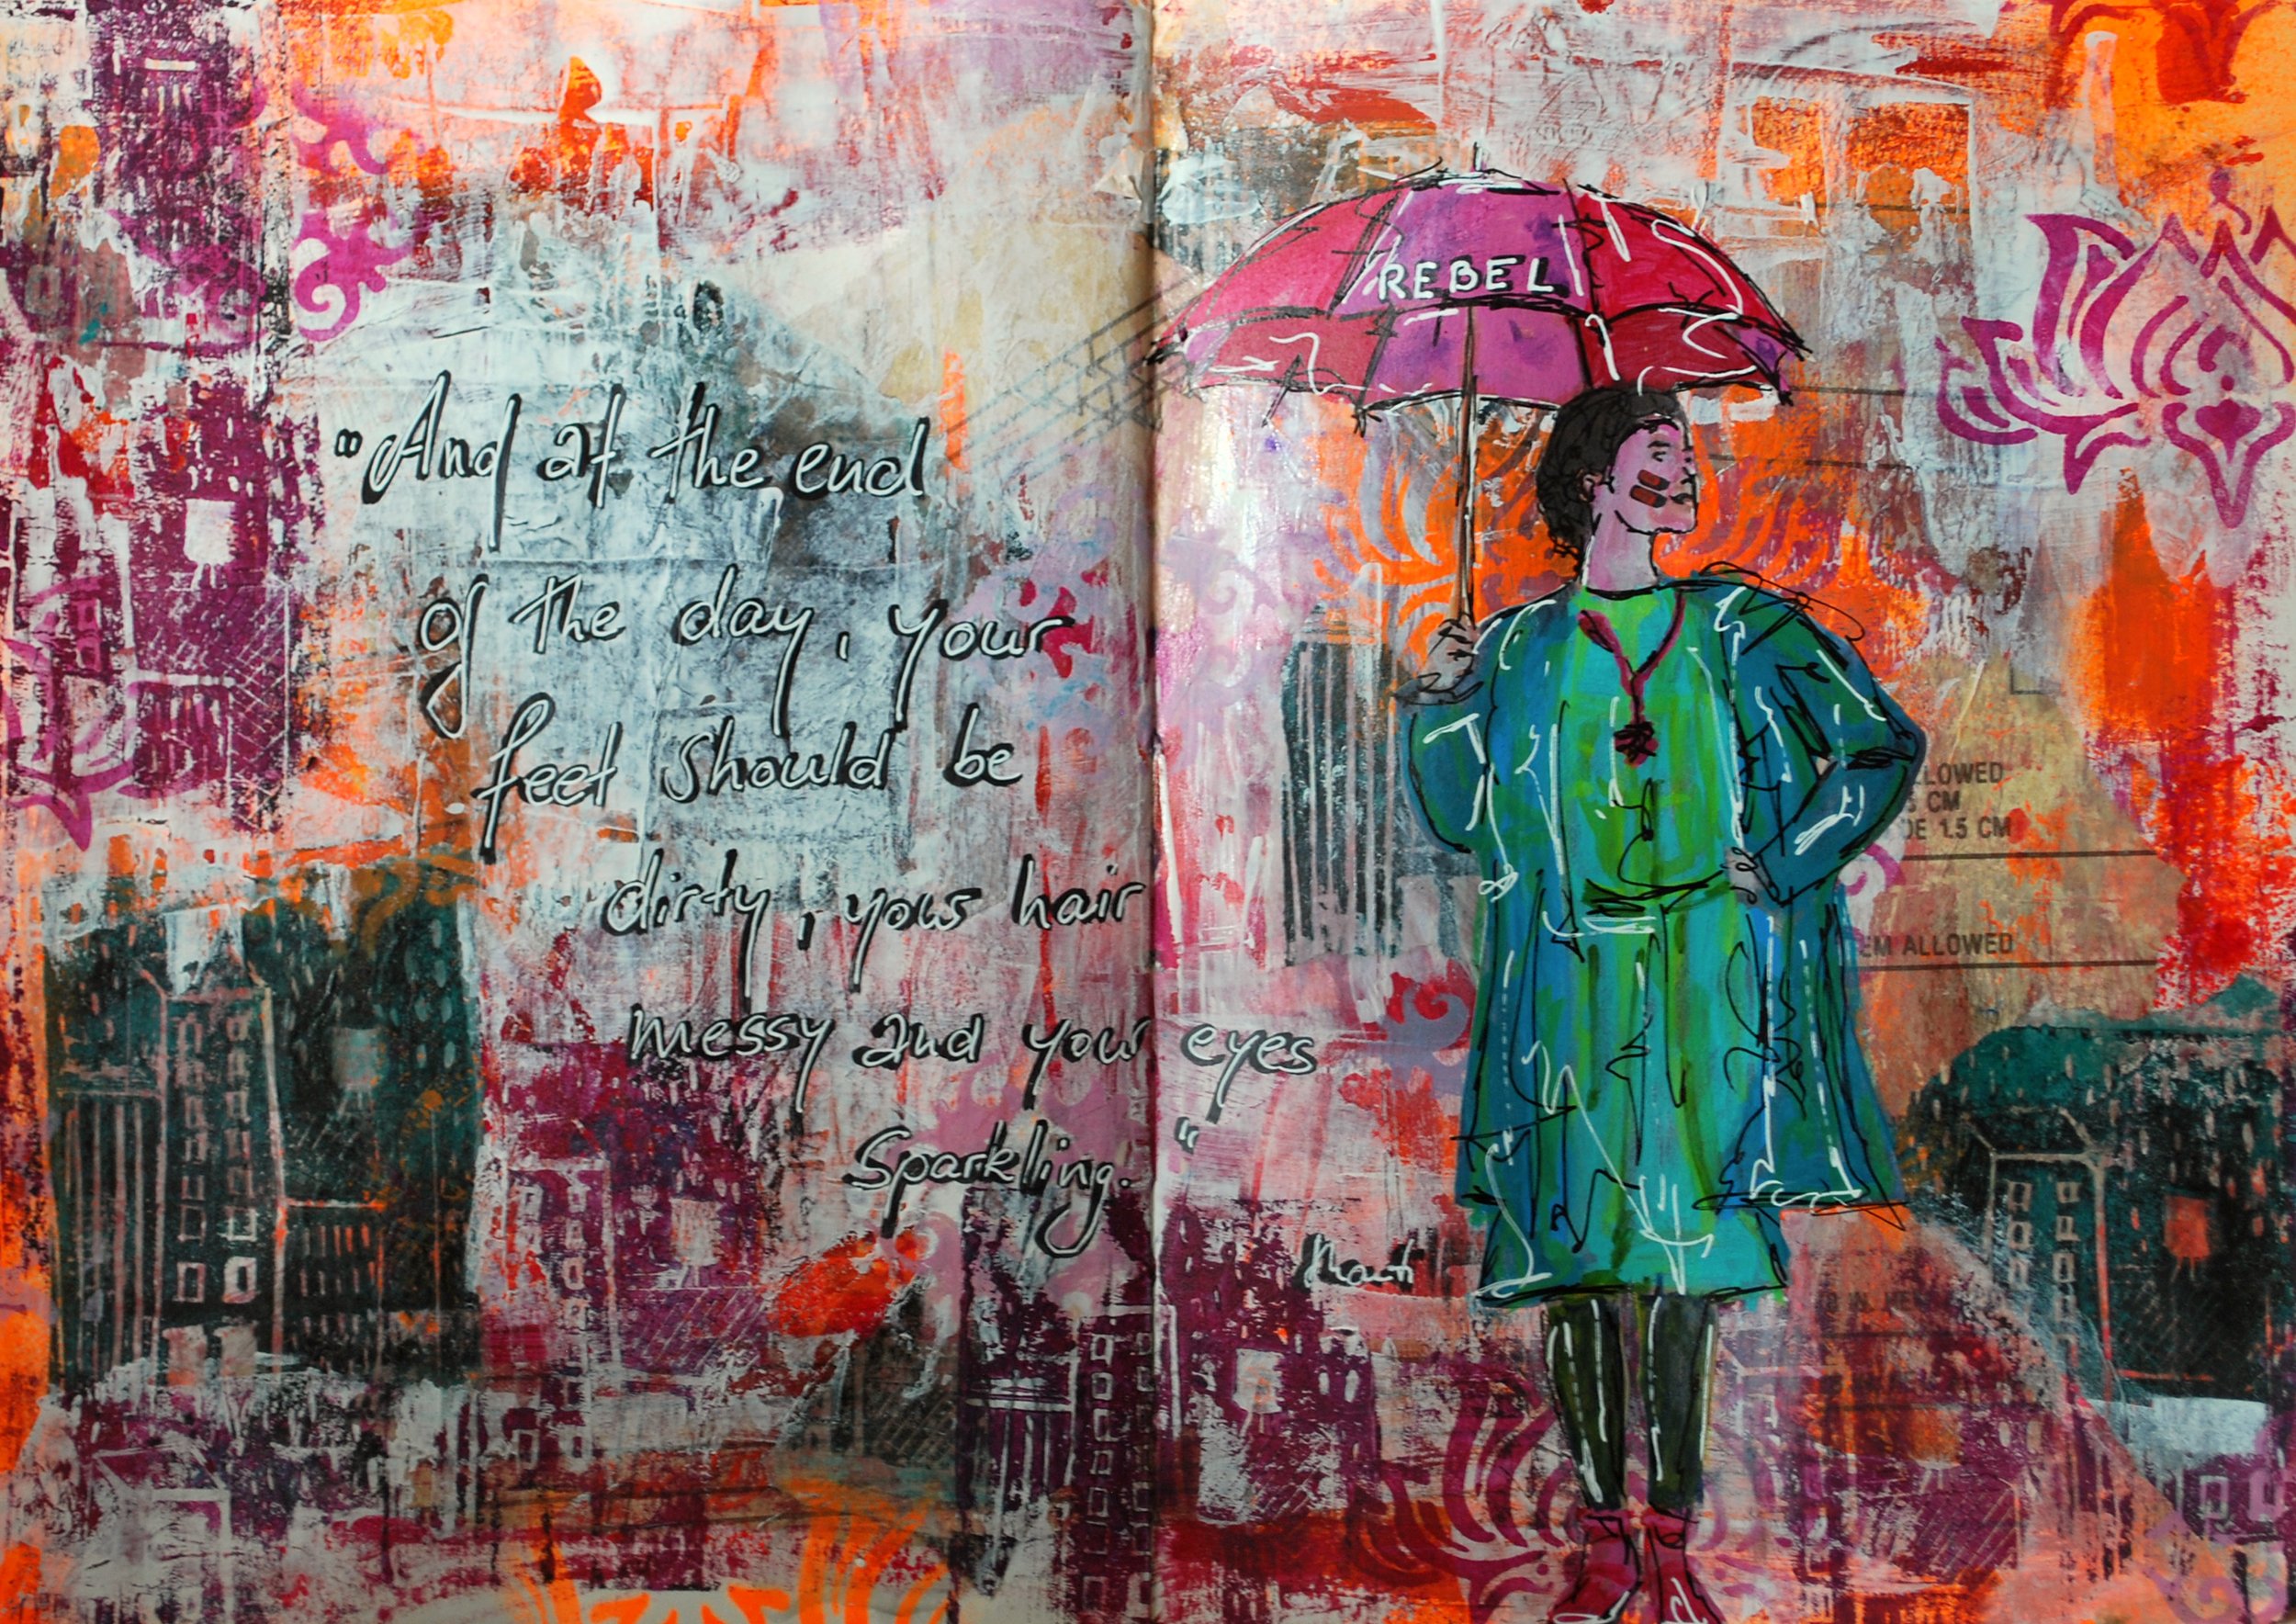 "And at the end
of the day, your
feet should be
dirty, your hair
messy and your eyes
Sparkling."
REBEL
LLOWED
5 CM
DE 1.5 CM
EM ALLOWED